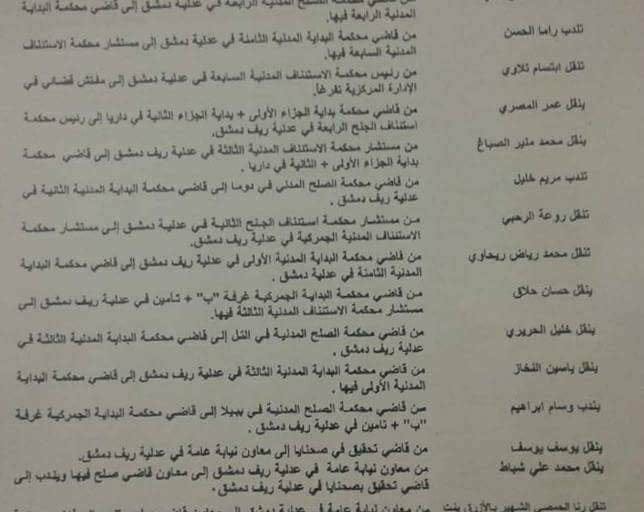 من قاضي محكمة الصلح المدنية الرابعة في عدلية دمشق إلى قاضي محكمة البداية
المدنية الرابعة فيها.
تندب راما الحسن من قاضي محكمة البداية المدنية الثامنة في عدلية دمشق إلى مستشار محكمة الاستئناف
المدنية السابعة فيها.
تنقل ابتسام تلاوي من رئيس محكمة الاستئناف المدنية السابعة في عدلية دمشق إلى مفتش قضائي في
الإدارة المركزية تفرغاً.
ينقل عمر المصري من قاضي محكمة بداية الجزاء الأولى + بداية الجزاء الثانية في داريا إلى رئيس محكمة
استئناف الجنح الرابعة في عدلية ريف دمشق.
ينقل محمد منير الصباغ من مستشار محكمة الاستئناف المدنية الثالثة في عدلية ريف دمشق إلى قاضي محكمة
بداية الجزاء الأولى + الثانية في داريا .
تندب مريم خليل من قاضي محكمة الصلح المدني في دوما إلى قاضي محكمة البداية المدنية الثانية في
عدلية ريف دمشق .
تنقل روعة الرحبي من مستشار محكمة استئناف الجنح الثانية في عدلية دمشق إلى مستشار محكمة
الاستئناف المدنية الجمركية في عدلية ريف دمشق.
تنقل محمد رياض ريحاوي من قاضي محكمة البداية المدنية الأولى في عدلية ريف دمشق إلى قاضي محكمة البداية
المدنية الثامنة في عدلية دمشق .
ينقل حسان حلاق من قاضي محكمة البداية الجمركية غرفة "ب" + تأمين في عدلية ريف دمشق إلى
مستشار محكمة الاستئناف المدنية الثالثة فيها.
ينقل خليل الحريري من قاضي محكمة الصلح المدنية في التل إلى قاضي محكمة البداية المدنية الثالثة في
عدلية ريف دمشق .
ينقل ياسين النخاز من قاضي محكمة البداية المدنية الثالثة في عدلية ريف دمشق إلى قاضي محكمة البداية
المدنية الأولى فيها .
يندب وسام ابراهيم من قاضي محكمة الصلح المدنية في ببيلا إلى قاضي محكمة البداية الجمركية غرفة
"ب" + تامين في عدلية ريف دمشق .
ينقل يوسف يوسف من قاضي تحقيق في صحنايا إلى معاون نيابة عامة في عدلية ريف دمشق.
ينقل محمد علي شباط من معاون نيابة عامة في عدلية ريف دمشق إلى معاون قاضي صلح فيها ويندب إلى
قاضي تحقيق بصحنايا في عدلية ريف دمشق.
تنقل رنا الحمصي الشهير بالأزرق بنت من معاون نيابة عامة في عدلية دمشق إلى معاون قاضي